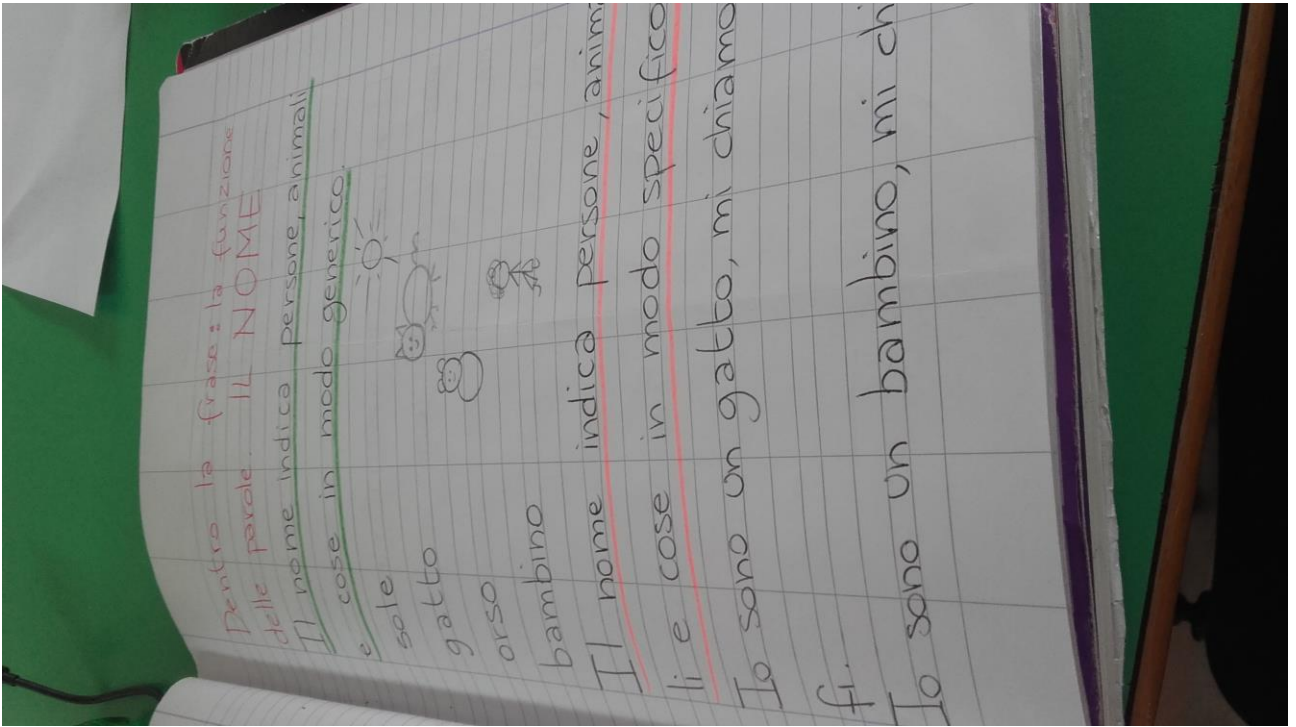 Dentro la frase: la funzione
delle parole. IL NOME
Il nome indica persone, animali
e cose in modo generico.
sole
gatto
orso
bambino
Il nome indica persone, anima
li e cose in modo specifico
Io sono un gatto, mi chiamo
fi.
Io sono un bambino, mi ch